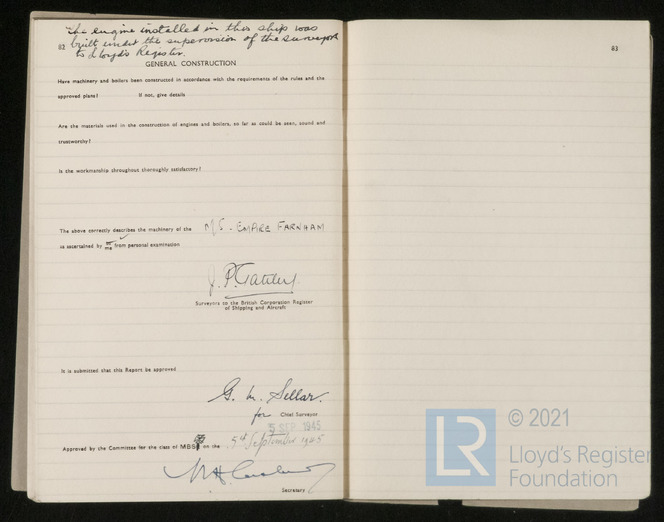 The engine installed in this ship was
82 built under the supervision of the surveyors
to Lloyd's Register.
GENERAL CONSTRUCTION
Have machinery and boilers been constructed in accordance with the requirements of the rules and the
approved plans? If not, give details
Are the materials used in the construction of engines and boilers, so far as could be seen, sound and
trustworthy?
Is the workmanship throughout thoroughly satisfactory?
The above correctly describes the machinery of the M.S. EMPIRE FARNHAM
as ascertained by me from personal examination
J. P.
Surveyors to the British Corporation Register
of Shipping and Aircraft
It is submitted that this Report be approved
G. M. Sellar.
for Chief Surveyor
5 SEP 1945
Approved by the Committee for the class of MBS* on the 5th September 1945
Secretary
83
LR
© 2021
Lloyd's Register
Foundation